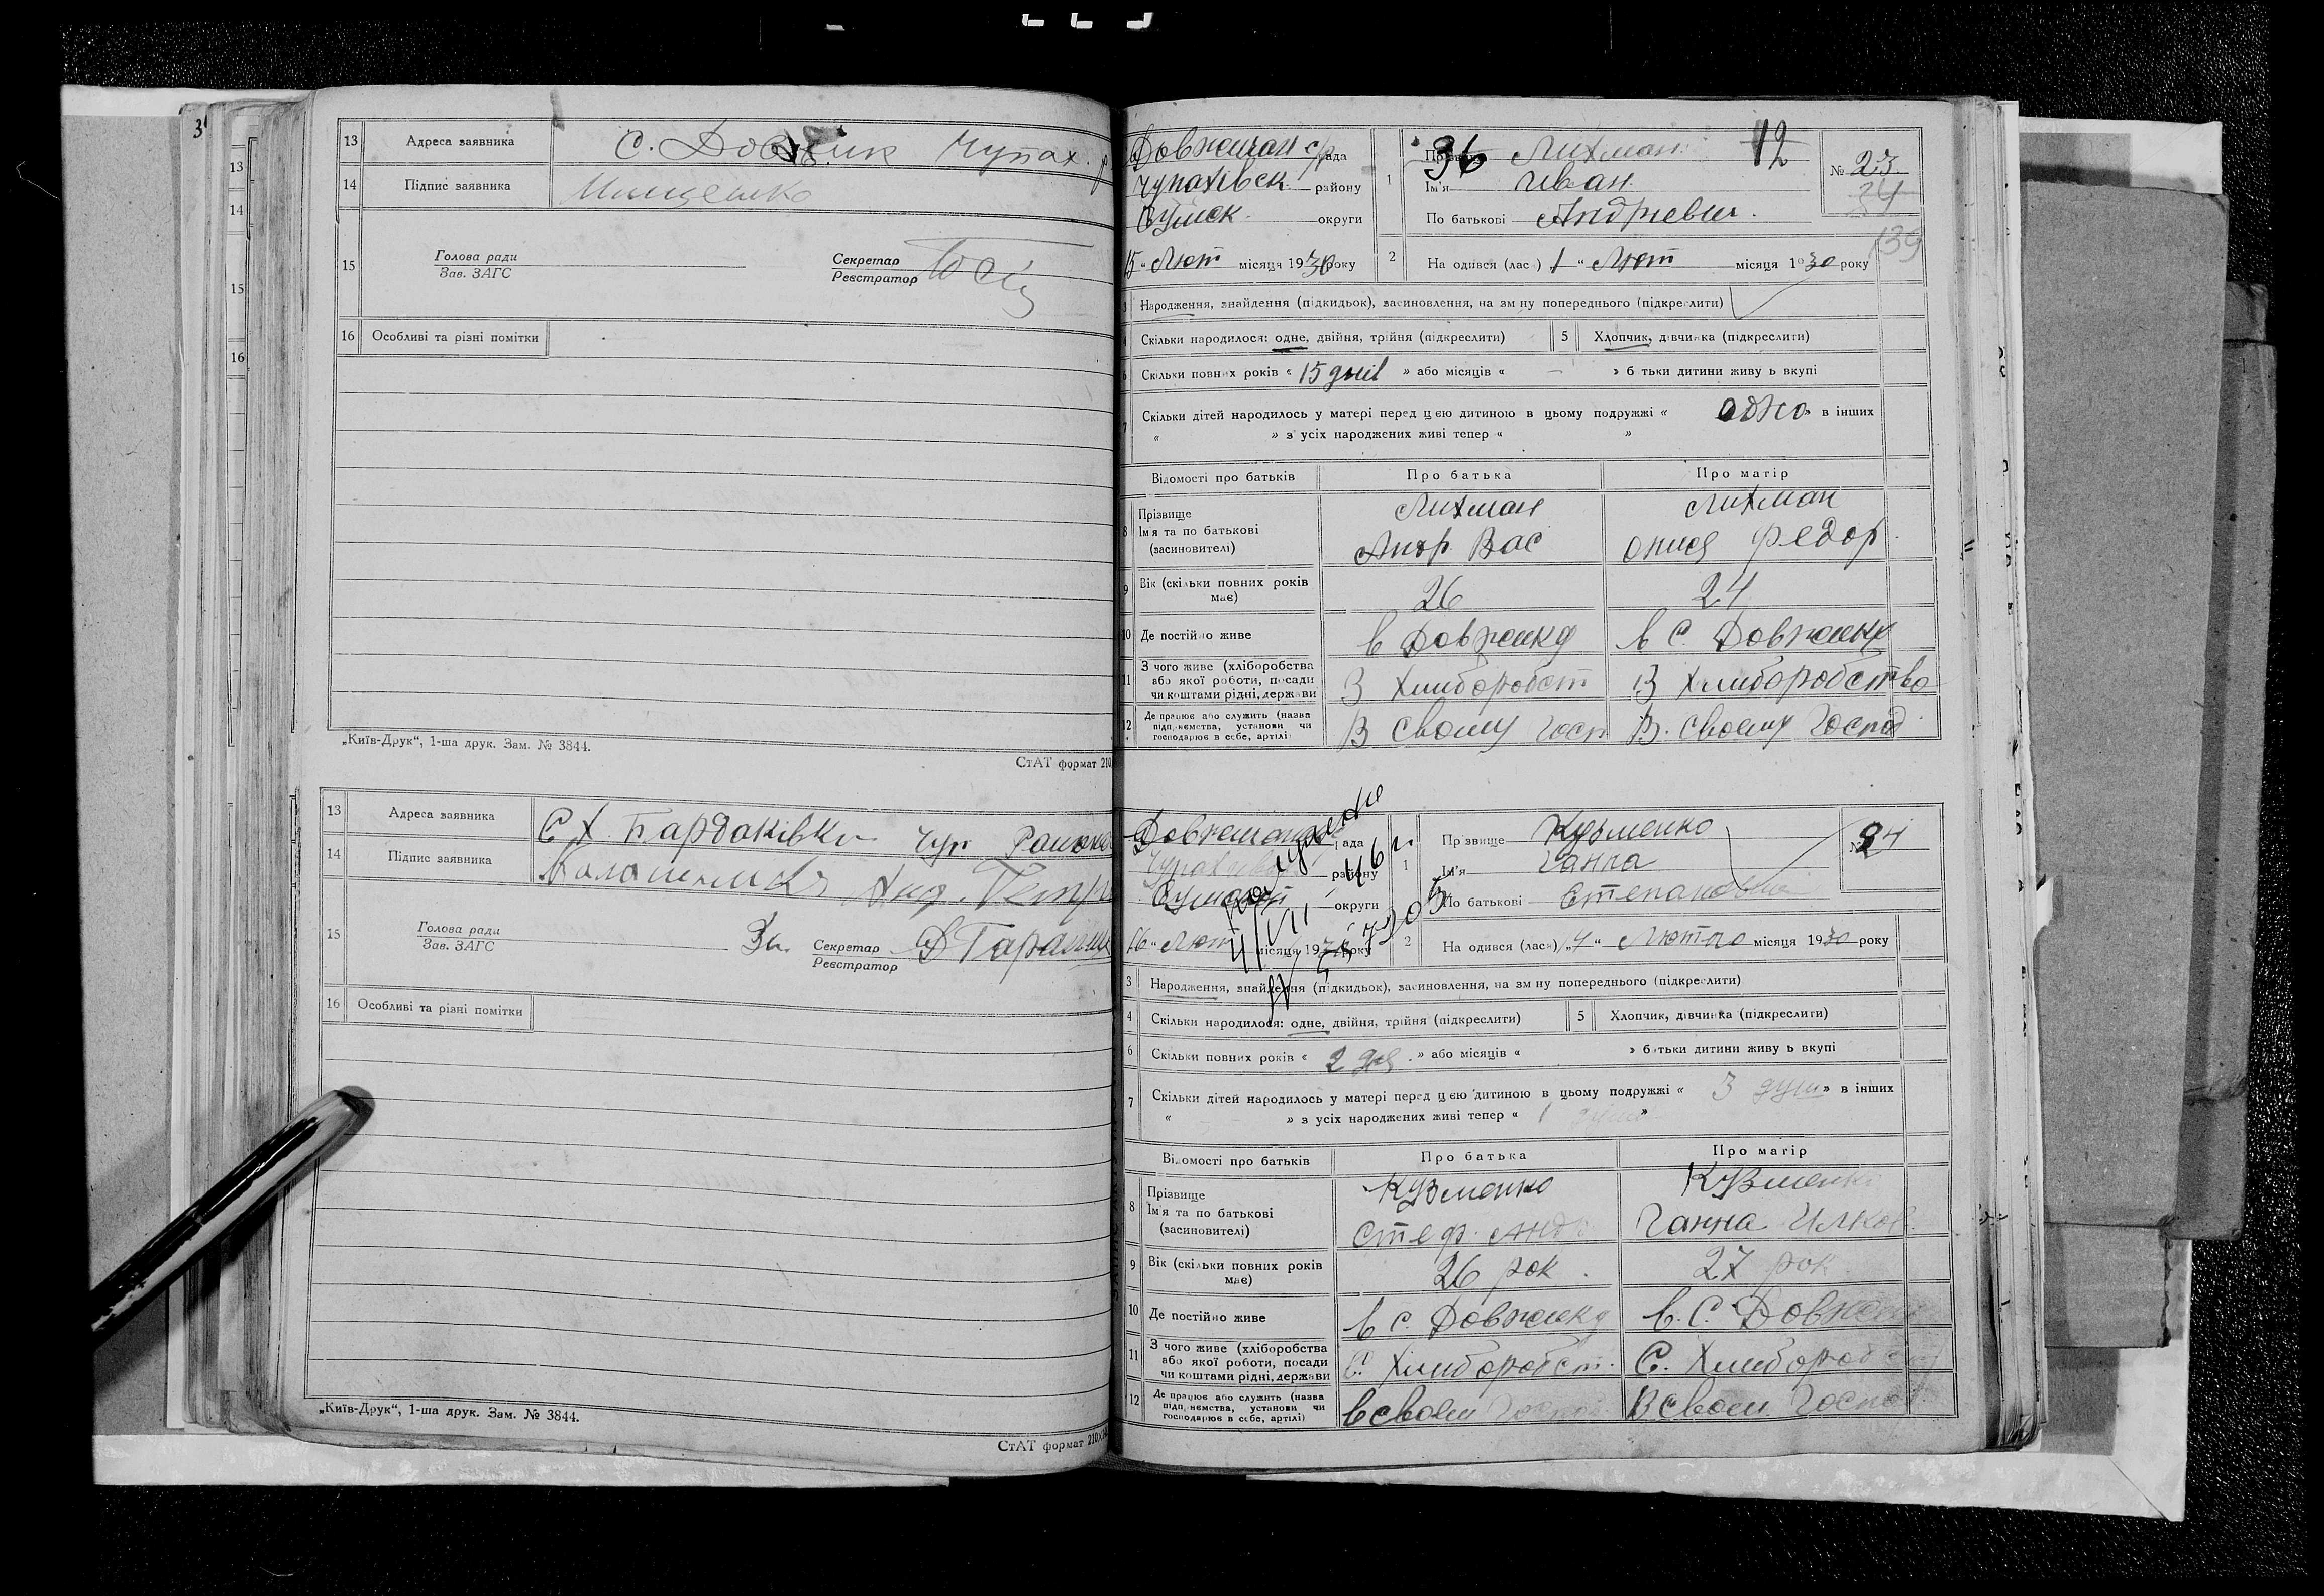 3
13
14
15
16
13 Адреса заявника С. Довжик Чупах. р
14 Підпис заявника Мищенко
15 Голова ради
Зав. ЗАГС
Секретар
Реєстратор
16 Особливі та різні помітки
„Київ-Друк“, 1-ша друк. Зам. № 3844.
СтАТ формат 210
13 Адреса заявника С Х. Бардаківка Чуп Району
14 Підпис заявника
15 Голова ради
Зав. ЗАГС
За Секретар
Реєстратор
16 Особливі та різні помітки
„Київ-Друк“, 1-ша друк. Зам. № 3844.
СтАТ формат 210
Довжицан с/рада
Чупахівск. району
Сумск. округи
15 „ Лют місяця 1930 року
36
1 Прізвище Лихман 12
Ім'я Иван
По батькові Андриевич.
№ 23
34
139
2 На одився (лас ) 1 “ Лют місяця 1930 року
3 Народження, знайдення (підкидьок), засиновлення, на зм ну попереднього (підкреслити)
4 Скільки народилося: одне, двійня, трійня (підкреслити) 5 Хлопчик, дівчинка (підкреслити)
6 Скільки повних років « 15 днів » або місяців « — » батьки дитини живу ь вкупі
7 Скільки дітей народилось у матері перед цею дитиною в цьому подружжі « одно » в інших
« » з усіх народжених живі тепер « »
Відомості про батьків Про батька Про матір
8 Прізвище Лихман Лихман
Ім'я та по батькові
(засиновителі) Андр. Вас Федор
9 Вік (скільки повних років має) 26 24
10 Де постійно живе в Довжику в С. Довжику
11 З чого живе (хліборобства або якої роботи, посади чи коштами рідні, держави З Хлиборобст З Хлиборобство
12 Де працює або служить (назва підприємства, установи чи господарює в себе, артілі) В Своему Госп В. Своему Господ
Довжицан рада
району
округи
16 „ Лют місяця 1930 року
1 Прізвище Кузьменко
Ім'я Ганна
По батькові Степановна
№ 24
2 На одився (лася) „4 “ Лютго місяця 1930 року
3 Народження, знайдення (підкидьок), засиновлення, на зм ну попереднього (підкреслити)
4 Скільки народилося: одне, двійня, трійня (підкреслити) 5 Хлопчик, дівчинка (підкреслити)
6 Скільки повних років « 2 дня » або місяців « » батьки дитини живу ь вкупі
7 Скільки дітей народилось у матері перед цею дитиною в цьому подружжі « 3 душ » в інших
« » з усіх народжених живі тепер « 1 душ »
Відомості про батьків Про батька Про матір
8 Прізвище Кузменко Кузменко
Ім'я та по батькові
(засиновителі) Стеф. Андр Ганна Илков.
9 Вік (скільки повних років має) 26 рок. 27 рок
10 Де постійно живе в С. Довжику в. С. Довжику
11 З чого живе (хліборобства або якої роботи, посади чи коштами рідні, держави С. Хлиборобст. С. Хлиборобст
12 Де працює або служить (назва підприємства, установи чи господарює в себе, артілі) В своем Господ В своем. Господ